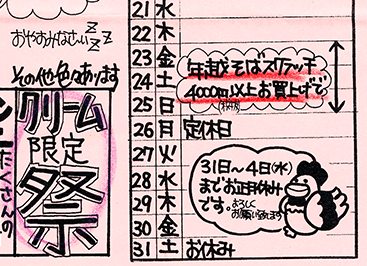 おやすみなさい zzz
その他色々あります
クリーム
限定
祭
たくさんの
21 水
22 木
23 金
24 土
25 日
26 月 定休日
27 火
28 水
29 木
30 金
31 土 お休み
年越そばスクラッチ
4000円以上お買上げで
31日〜4日(水)
までお正月休み
です。よろしく
お願い致します